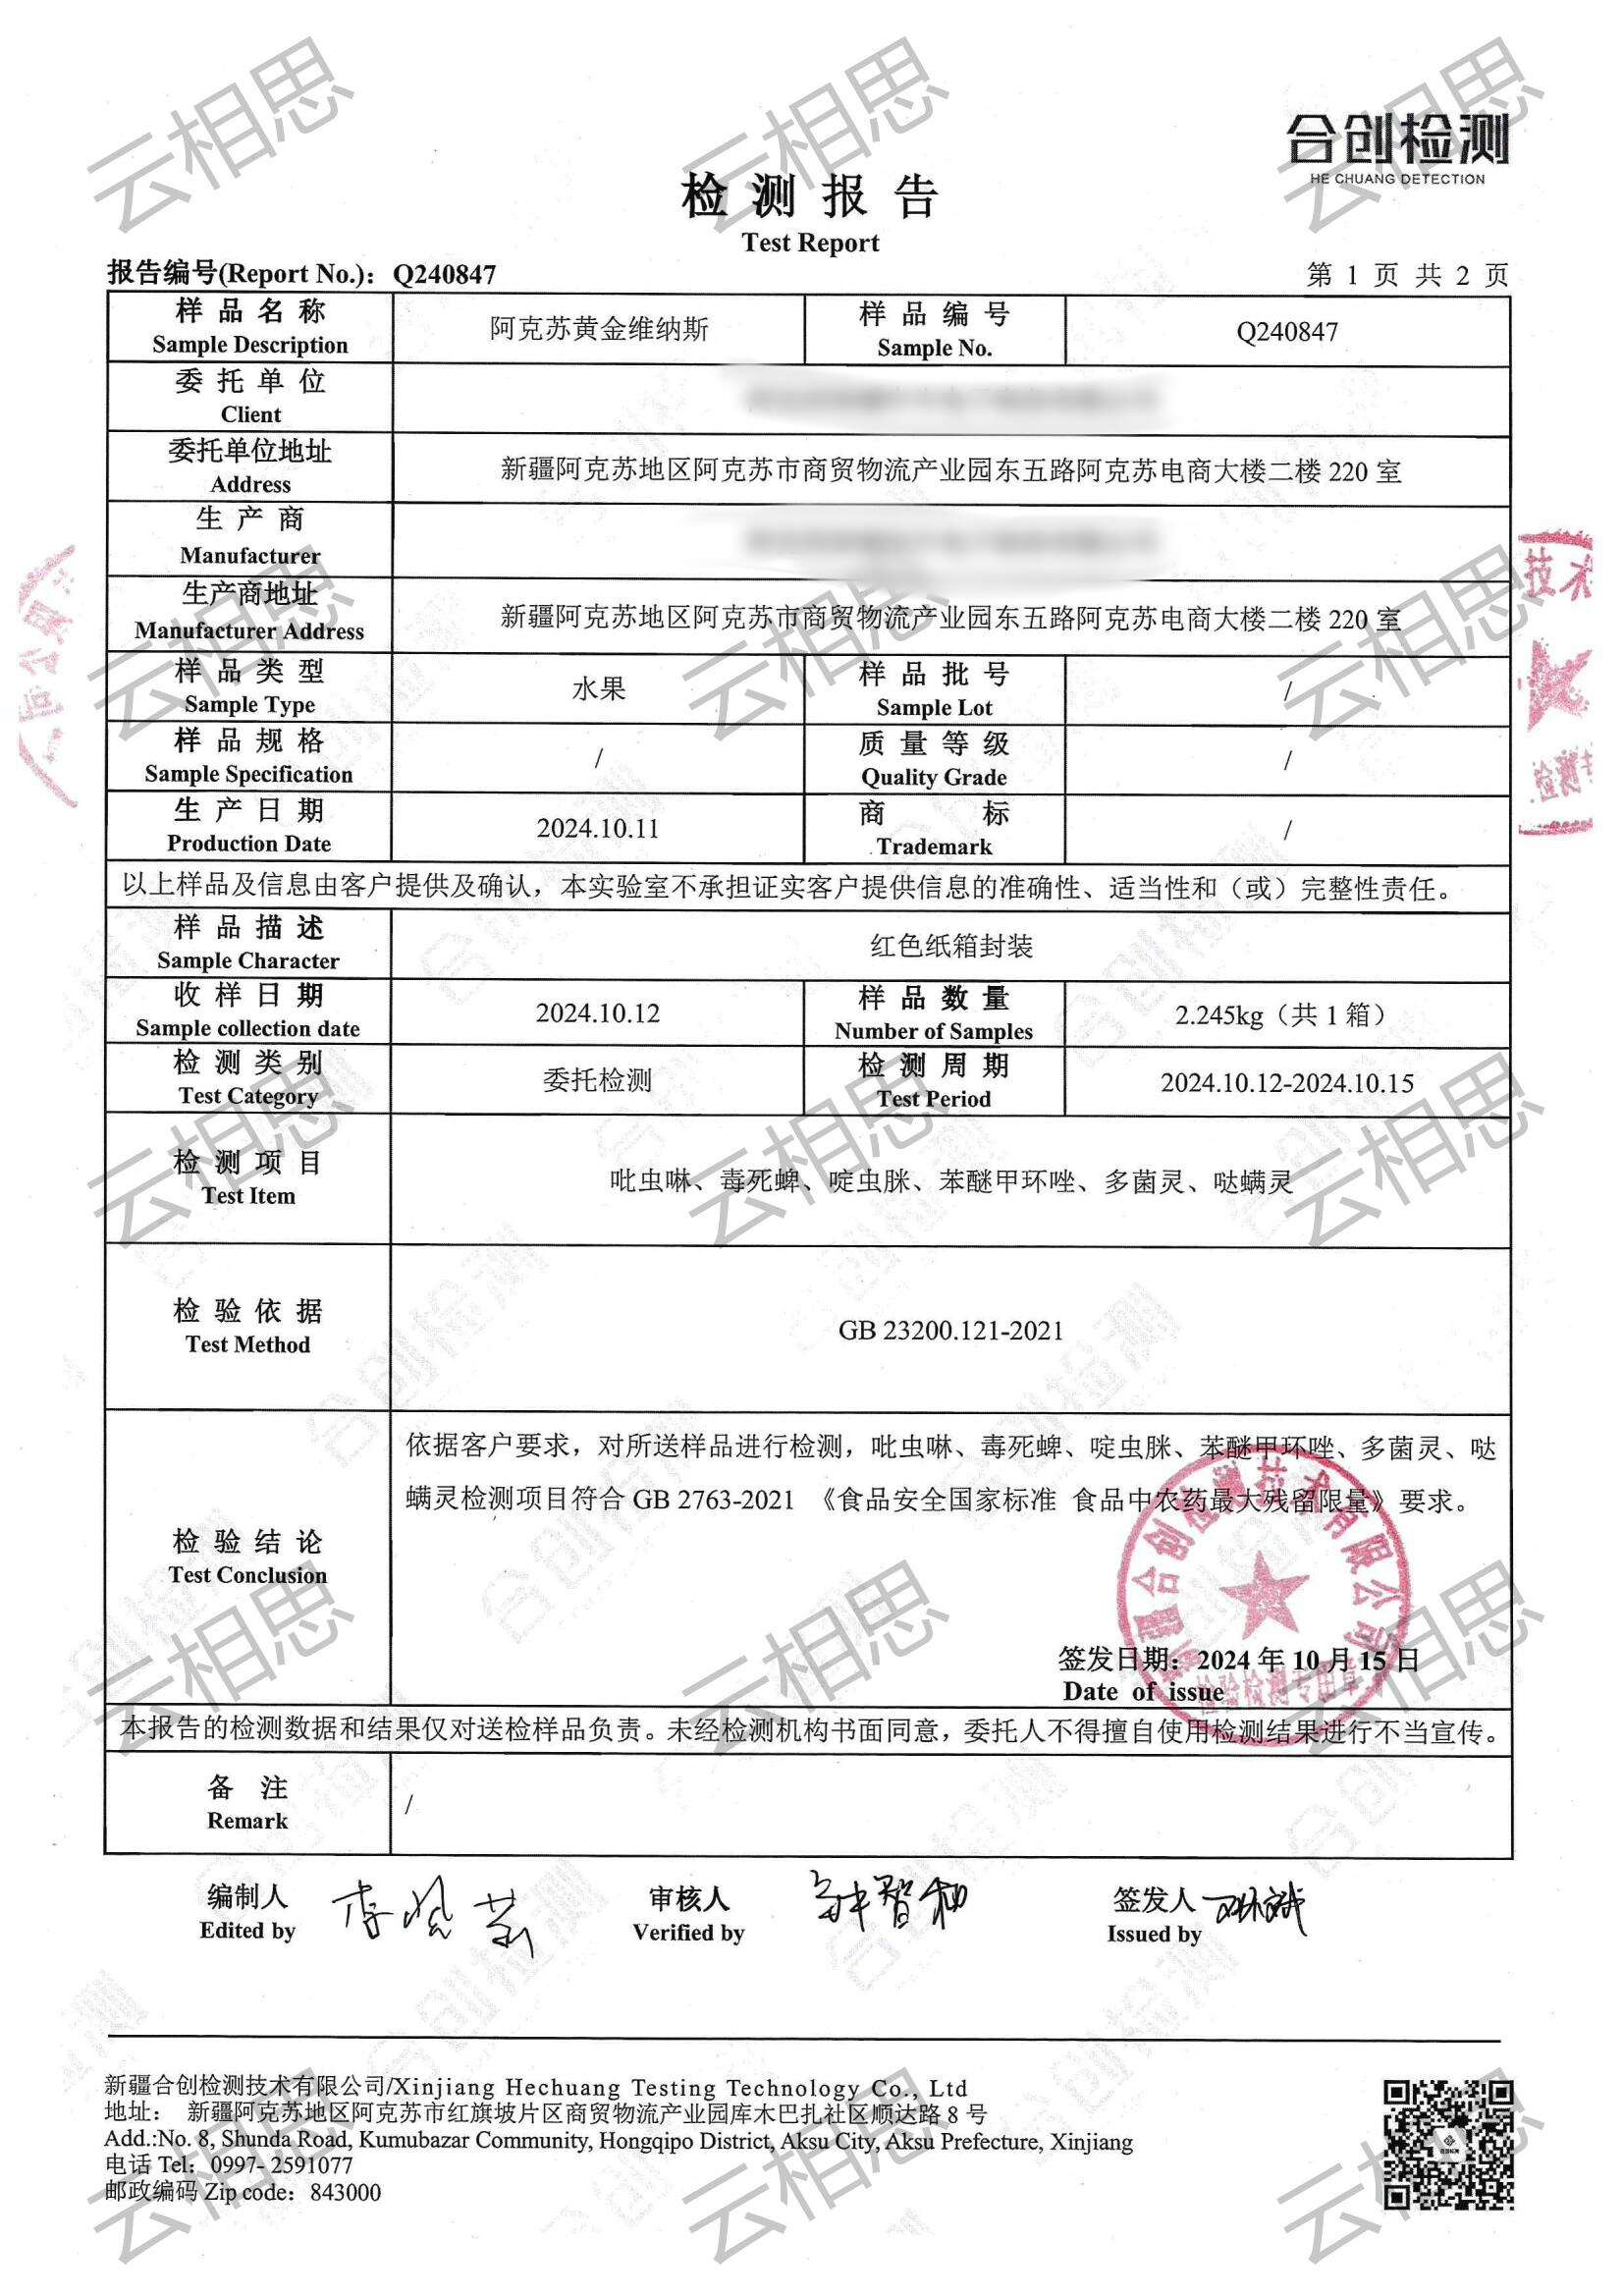 合创检测
HE CHUANG DETECTION
检测报告
Test Report
报告编号(Report No.)：Q240847
第 1 页 共 2 页
样品名称
Sample Description
阿克苏黄金维纳斯
样品编号
Sample No.
Q240847
委托单位
Client
委托单位地址
Address
新疆阿克苏地区阿克苏市商贸物流产业园东五路阿克苏电商大楼二楼 220 室
生产商
Manufacturer
生产商地址
Manufacturer Address
新疆阿克苏地区阿克苏市商贸物流产业园东五路阿克苏电商大楼二楼 220 室
样品类型
Sample Type
水果
样品批号
Sample Lot
/
样品规格
Sample Specification
/
质量等级
Quality Grade
/
生产日期
Production Date
2024.10.11
商标
Trademark
/
以上样品及信息由客户提供及确认，本实验室不承担证实客户提供信息的准确性、适当性和（或）完整性责任。
样品描述
Sample Character
红色纸箱封装
收样日期
Sample collection date
2024.10.12
样品数量
Number of Samples
2.245kg（共 1 箱）
检测类别
Test Category
委托检测
检测周期
Test Period
2024.10.12-2024.10.15
检测项目
Test Item
吡虫啉、毒死蜱、啶虫脒、苯醚甲环唑、多菌灵、哒螨灵
检验依据
Test Method
GB 23200.121-2021
检验结论
Test Conclusion
依据客户要求，对所送样品进行检测，吡虫啉、毒死蜱、啶虫脒、苯醚甲环唑、多菌灵、哒
螨灵检测项目符合 GB 2763-2021 《食品安全国家标准 食品中农药最大残留限量》要求。
新疆合创检测技术有限公司
检验检测专用章
签发日期：2024 年 10 月 15 日
Date of issue
本报告的检测数据和结果仅对送检样品负责。未经检测机构书面同意，委托人不得擅自使用检测结果进行不当宣传。
备注
Remark
/
编制人
Edited by
审核人
Verified by
签发人
Issued by
新疆合创检测技术有限公司/Xinjiang Hechuang Testing Technology Co., Ltd
地址： 新疆阿克苏地区阿克苏市红旗坡片区商贸物流产业园库木巴扎社区顺达路 8 号
Add.:No. 8, Shunda Road, Kumubazar Community, Hongqipo District, Aksu City, Aksu Prefecture, Xinjiang
电话 Tel：0997- 2591077
邮政编码 Zip code：843000
云相思